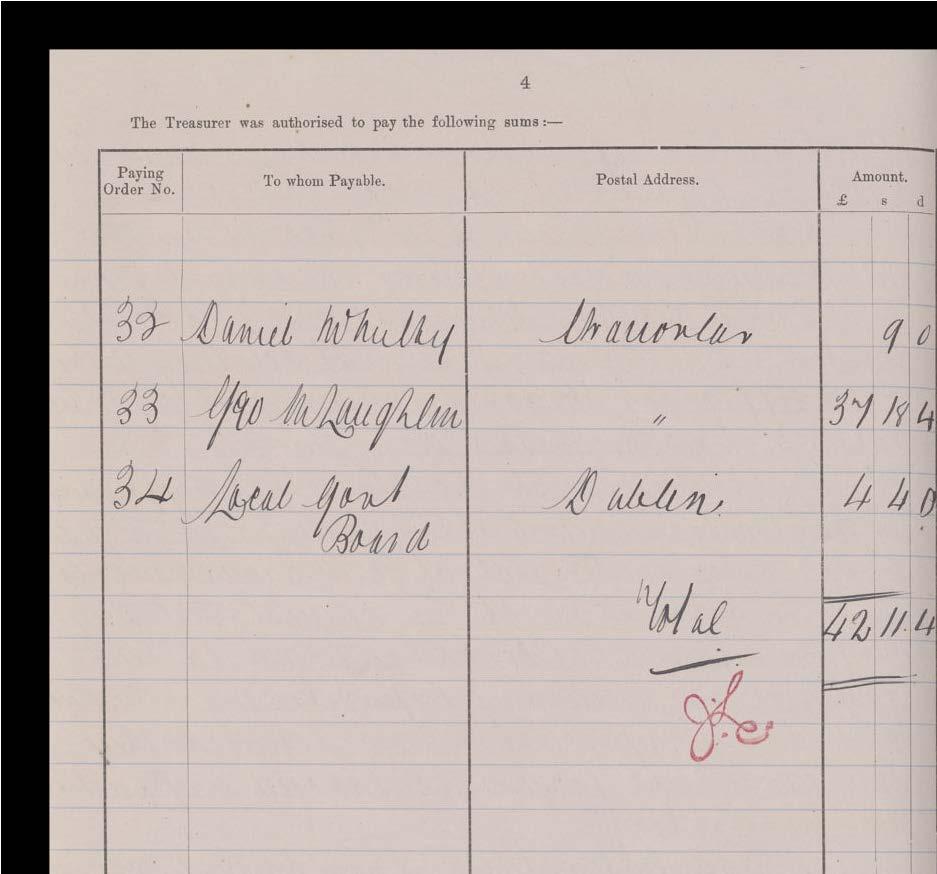 4
The Treasurer was authorised to pay the following sums :—
Paying Order No. To whom Payable. Postal Address. Amount.
£ s d
32 Daniel McNulty Stranorlar 9 0
33 Geo McLaughlin " 37 18 4
34 Local Govt Dublin 4 4 0
Board
Total 42 11 4